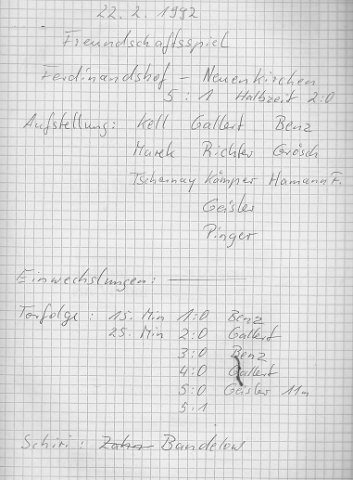 22. 2. 1992
Freundschaftsspiel
Ferdinandshof - Neuenkirchen
5 : 1 Halbzeit 2:0
Aufstellung: Kell Gallert Benz
Marek Richter Grösch
Tschernay Kämper Hamann F.
Geisler
Pinger
Einwechslungen: ———
Torfolge : 15. Min 1:0 Benz
25. Min 2:0 Gallert
3:0 Benz
4:0 Gallert
5:0 Geisler 11m
5:1
Schiri : Zahn Bandelow